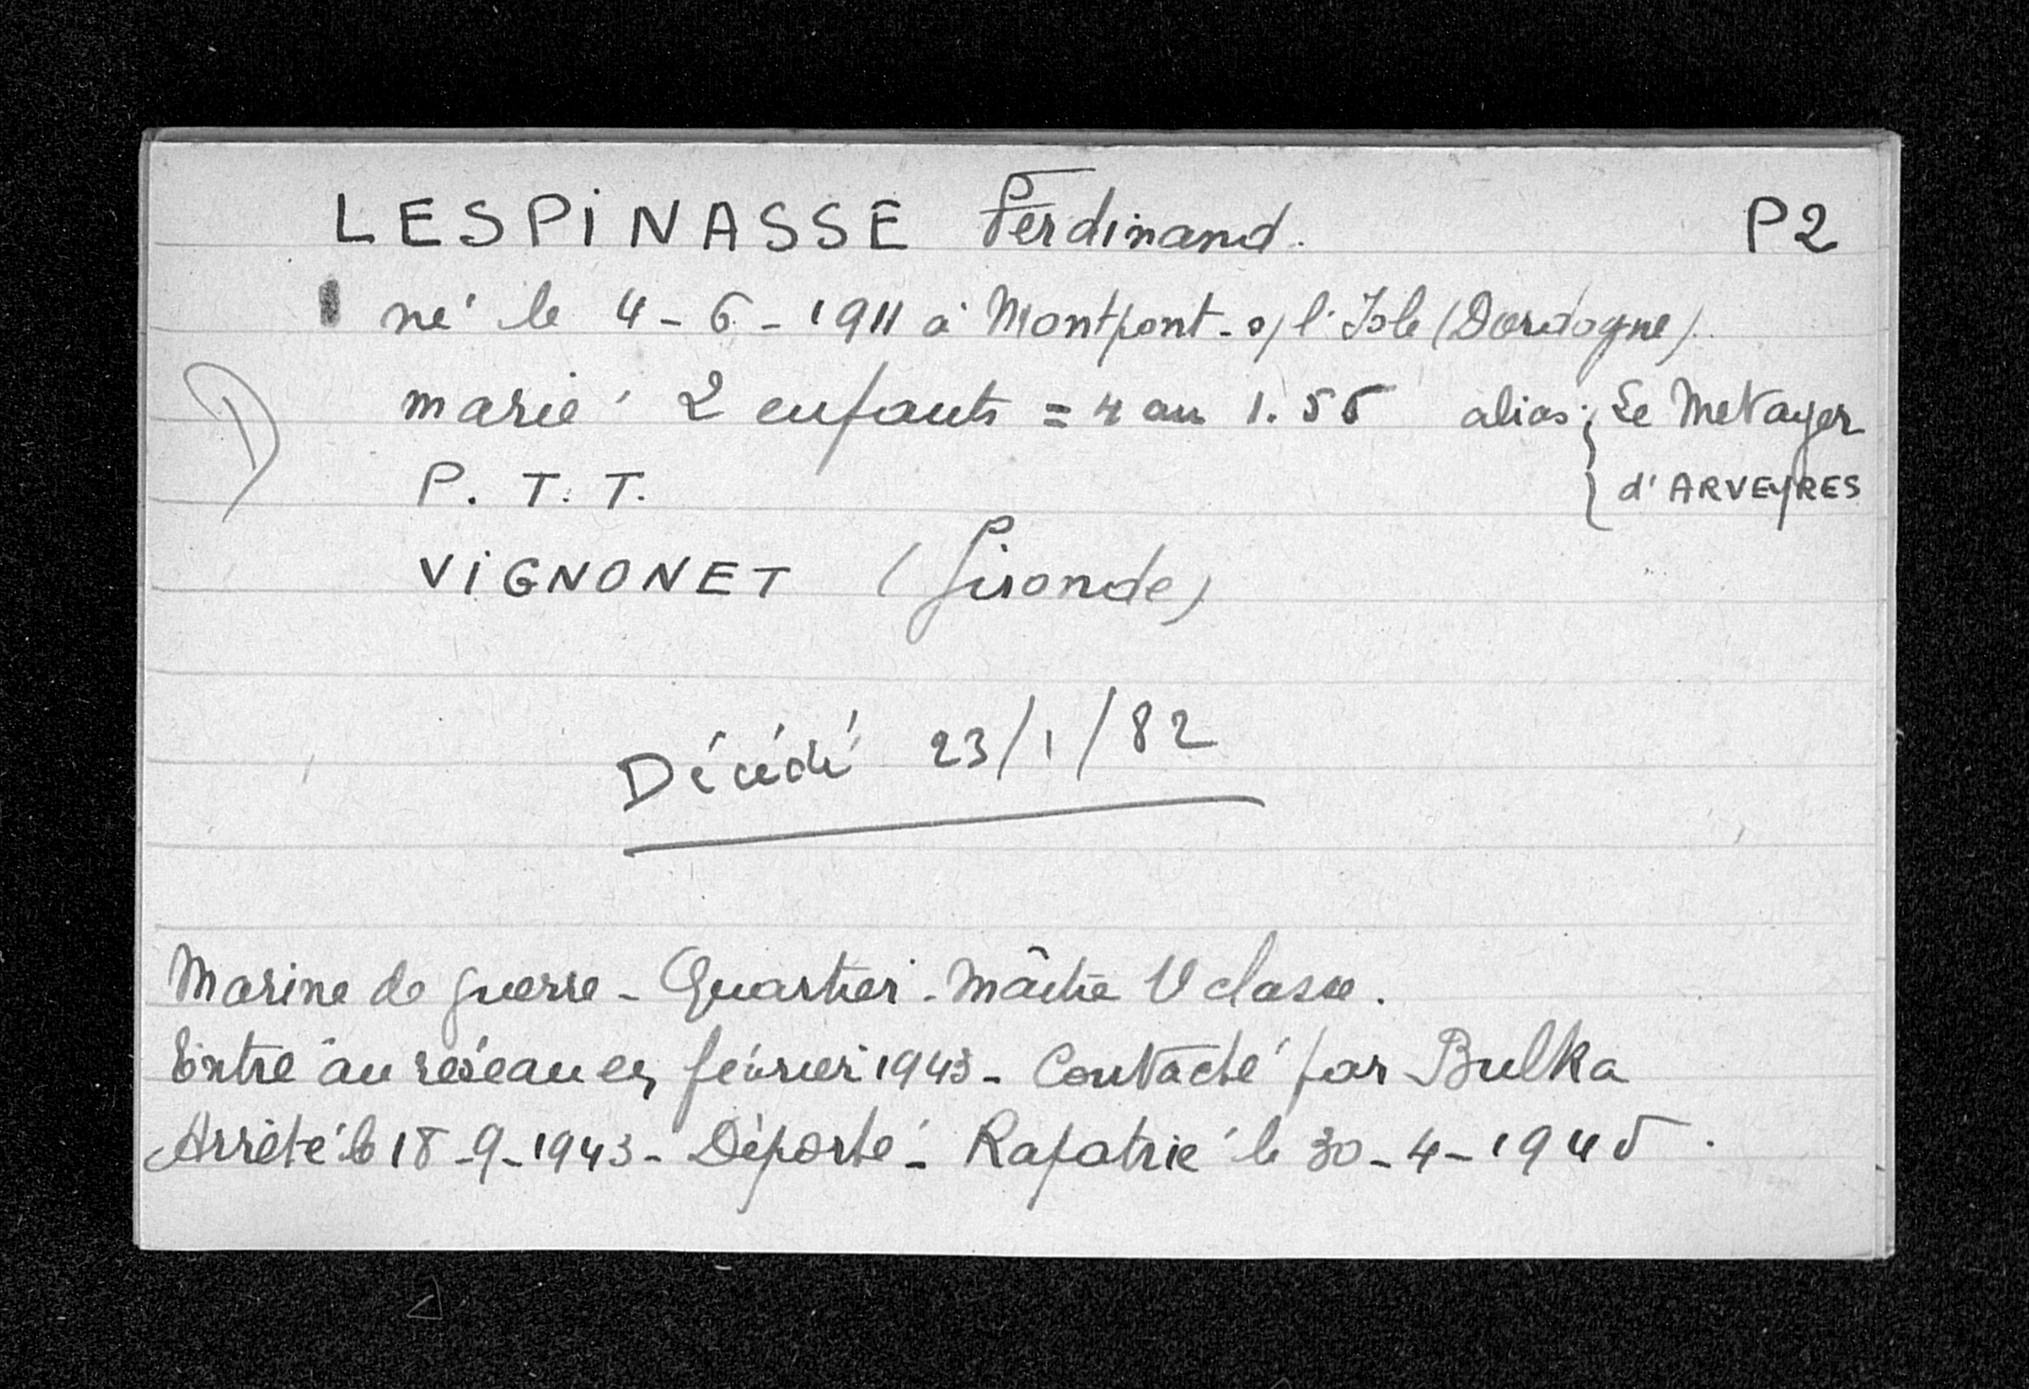 LESPINASSE Ferdinand. P2
né le 4-6-1911 à Montpont-s/l'Isle (Dordogne)
D
marié 2 enfants = 4 au 1.56 alias: Le Metayer
P. T. T. d'ARVEYRES
VIGNONET (Gironde)
Décédé 23/1/82
Marine de guerre - Quartier-Maître classe.
Entré au réseau en février 1943 - Contacté par Bulka
Arrêté le 18-9-1943 - Déporté - Rapatrié le 30-4-1945.